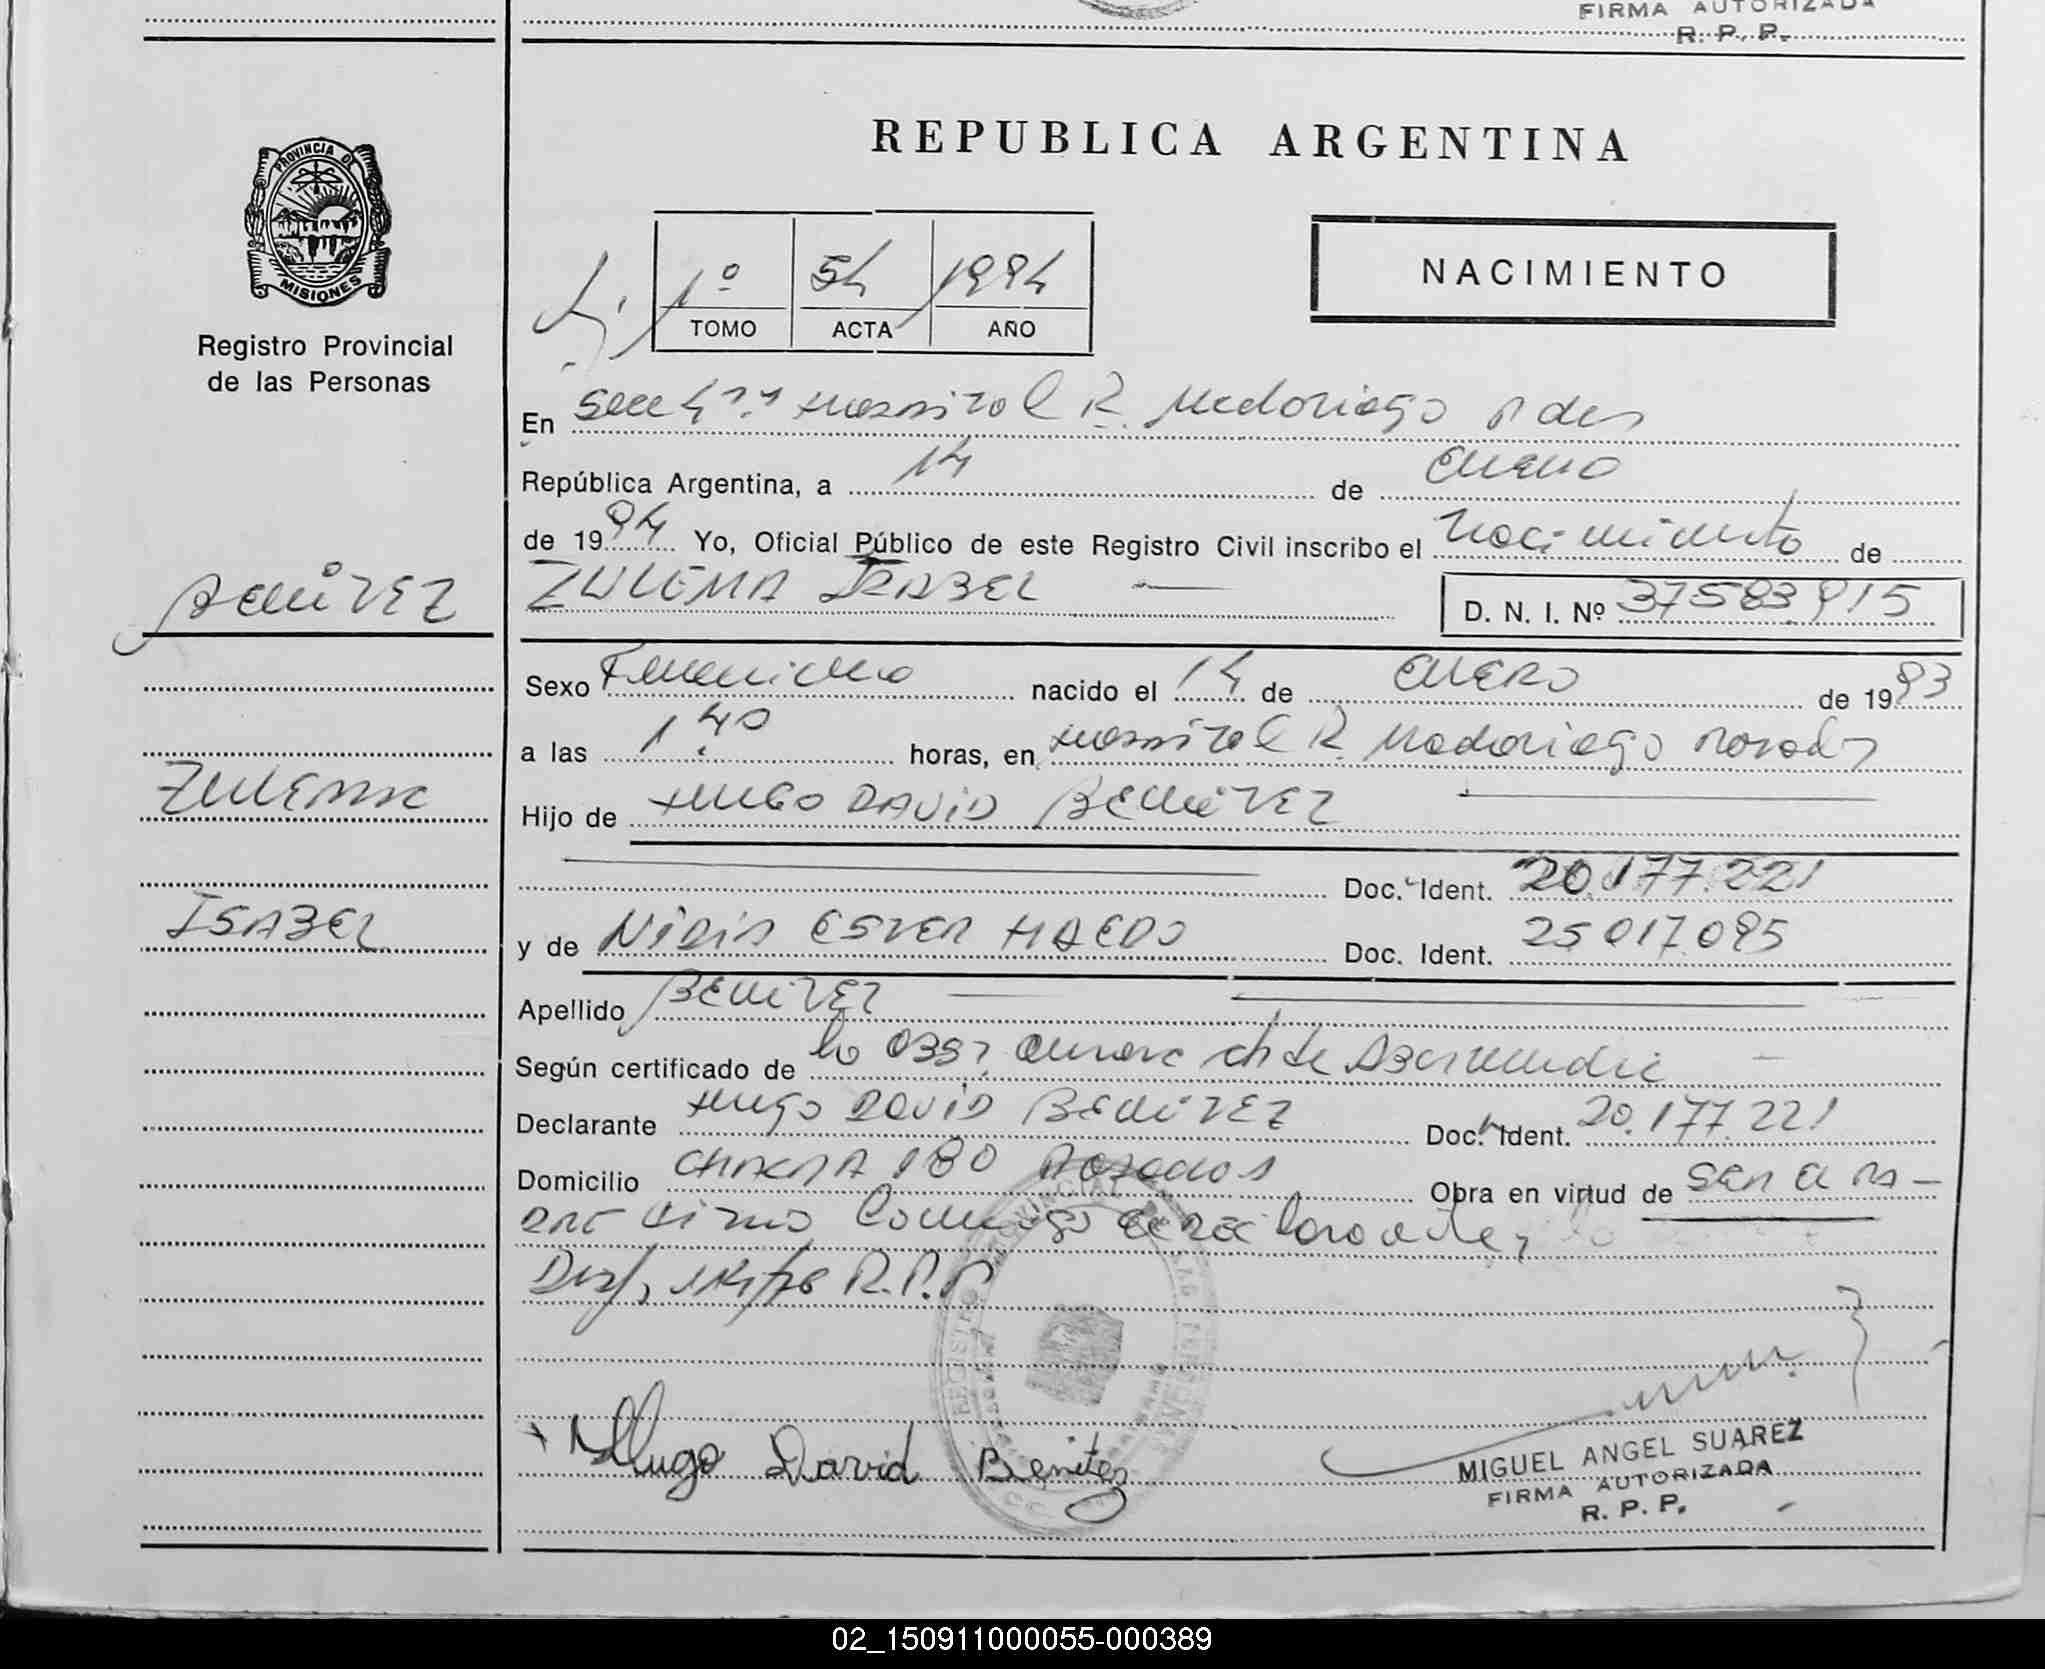 FIRMA AUTORIZADA
R. P. P.
REPUBLICA ARGENTINA
PROVINCIA DE
MISIONES
Registro Provincial
de las Personas
1º 54 1994
TOMO ACTA AÑO
NACIMIENTO
En Secc 4ª Hospital R. Madariaga Pdas
República Argentina, a 14 de Enero
de 1994 Yo, Oficial Público de este Registro Civil inscribo el Nacimiento de
BENITEZ
ZULEMA ISABEL
D. N. I. Nº 37583915
Sexo Femenino nacido el 14 de ENERO de 1993
a las 1.40 horas, en Hospital R. Madariaga Posadas
ZULEMA
Hijo de HUGO DAVID BENITEZ
Doc. Ident. 20.177.221
ISABEL
y de NIDIA ESTER MAEDO Doc. Ident. 25017095
Apellido BENITEZ
Según certificado de la
Declarante Hugo DAVID BENITEZ Doc. Ident. 20.177.221
Domicilio CHACRA 180 Posadas Obra en virtud de SER
R.P.P
Hugo David Benitez
MIGUEL ANGEL SUAREZ
FIRMA AUTORIZADA
R. P. P.
02_150911000055-000389